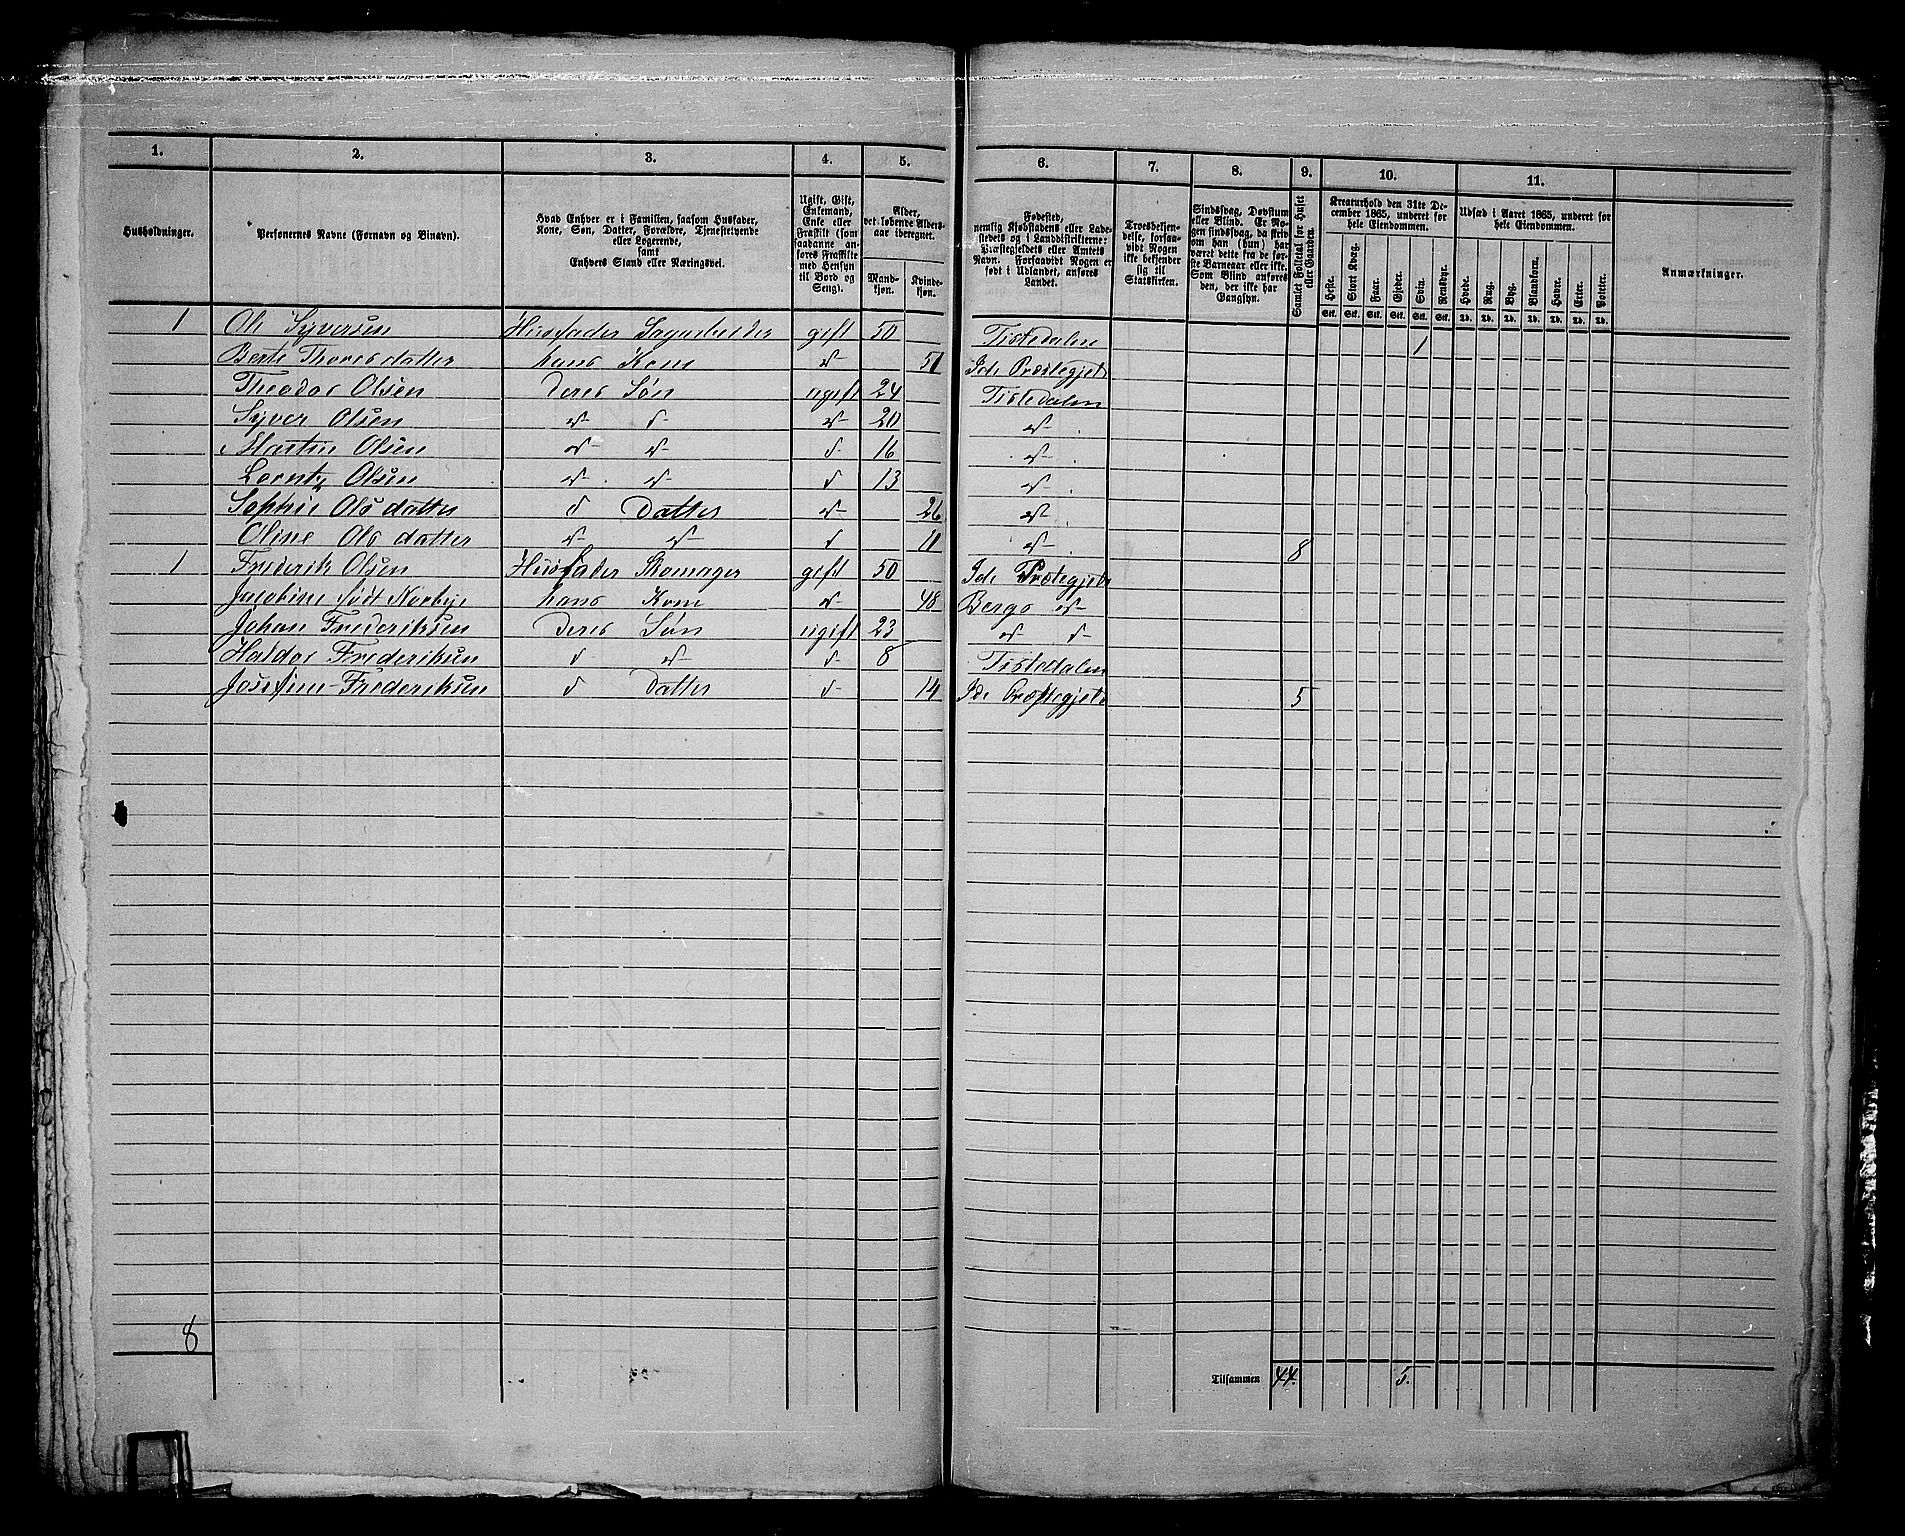 1. 2. 3. 4. 5. 6. 7. 8. 9. 10. 11.
Husholdninger.
Personernes Navne (Fornavn og Binavn).
Hvad Enhver er i Familien, saasom Husfader,
Kone, Søn, Datter, Forældre, Tjenestetyende
eller Logerende,
samt
Enhvers Stand eller Næringsvei.
Ugift, Gift,
Enkemand,
Enke eller
Fraskilt (som
saadanne an-
føres Fraskilte
med Hensyn
til Bord og
Seng).
Alder,
det løbende Alders-
aar iberegnet.
Mand-
kjøn.
Kvinde-
kjøn.
Fødested,
nemlig Kjøbstadens eller Lade-
stedets og i Landdistrikterne:
Præstegjeldets eller Amtets
Navn. Forsaavidt Nogen er
født i Udlandet, anføres
Landet.
Troesbekjen-
delse, forsaa-
vidt Nogen
ikke bekjender
sig til
Statskirken.
Sindssvag, Døvstum
eller Blind. Er No-
gen sindssvag, da skriv
om han (hun) har
været dette fra de før-
ste Barneaar eller ikke.
Som Blind anføres
den, der ikke har
Gangsyn.
Samlet Folketal for Huset
eller Gaarden.
Kreaturhold den 31te De-
cember 1865, underet for
hele Eiendommen.
Heste. Stort Kvæg. Faar. Gjeder. Svin. Rensdyr.
Stk. Stk. Stk. Stk. Stk. Stk.
Udsæd i Aaret 1865, underet for
hele Eiendommen.
Hvede. Rug. Byg. Blandkorn. Havre. Erter. Poteter.
Td. Td. Td. Td. Td. Td. Td.
Anmærkninger.
1 Ole Syversen Huusfader gift 50 Tistedalen 1
Berte Thoresdatter hans Kone " 51 Ide Præstegjeld
Theodor Olsen Deres Søn ugift 24 Tistedalen
Syver Olsen " " " 20 "
Martin Olsen " " " 16 "
Lorntz Olsen " " " 13 "
Sophie Olsdatter " Datter " 26 "
Oline Olsdatter " " " 11 " 8
1 Frederik Olsen Huusfader Skomager gift 50 Ide Præstegjeld
Jacobine født Norbye hans Kone " 48 Bergs "
Johan Frederiksen Deres Søn ugift 23 " "
Haldor Frederiksen " " " 8 Tistedalen
Josefine Frederiksen " Datter " 14 Ide Præstegjeld 5
8
Tilsammen 44. 5.